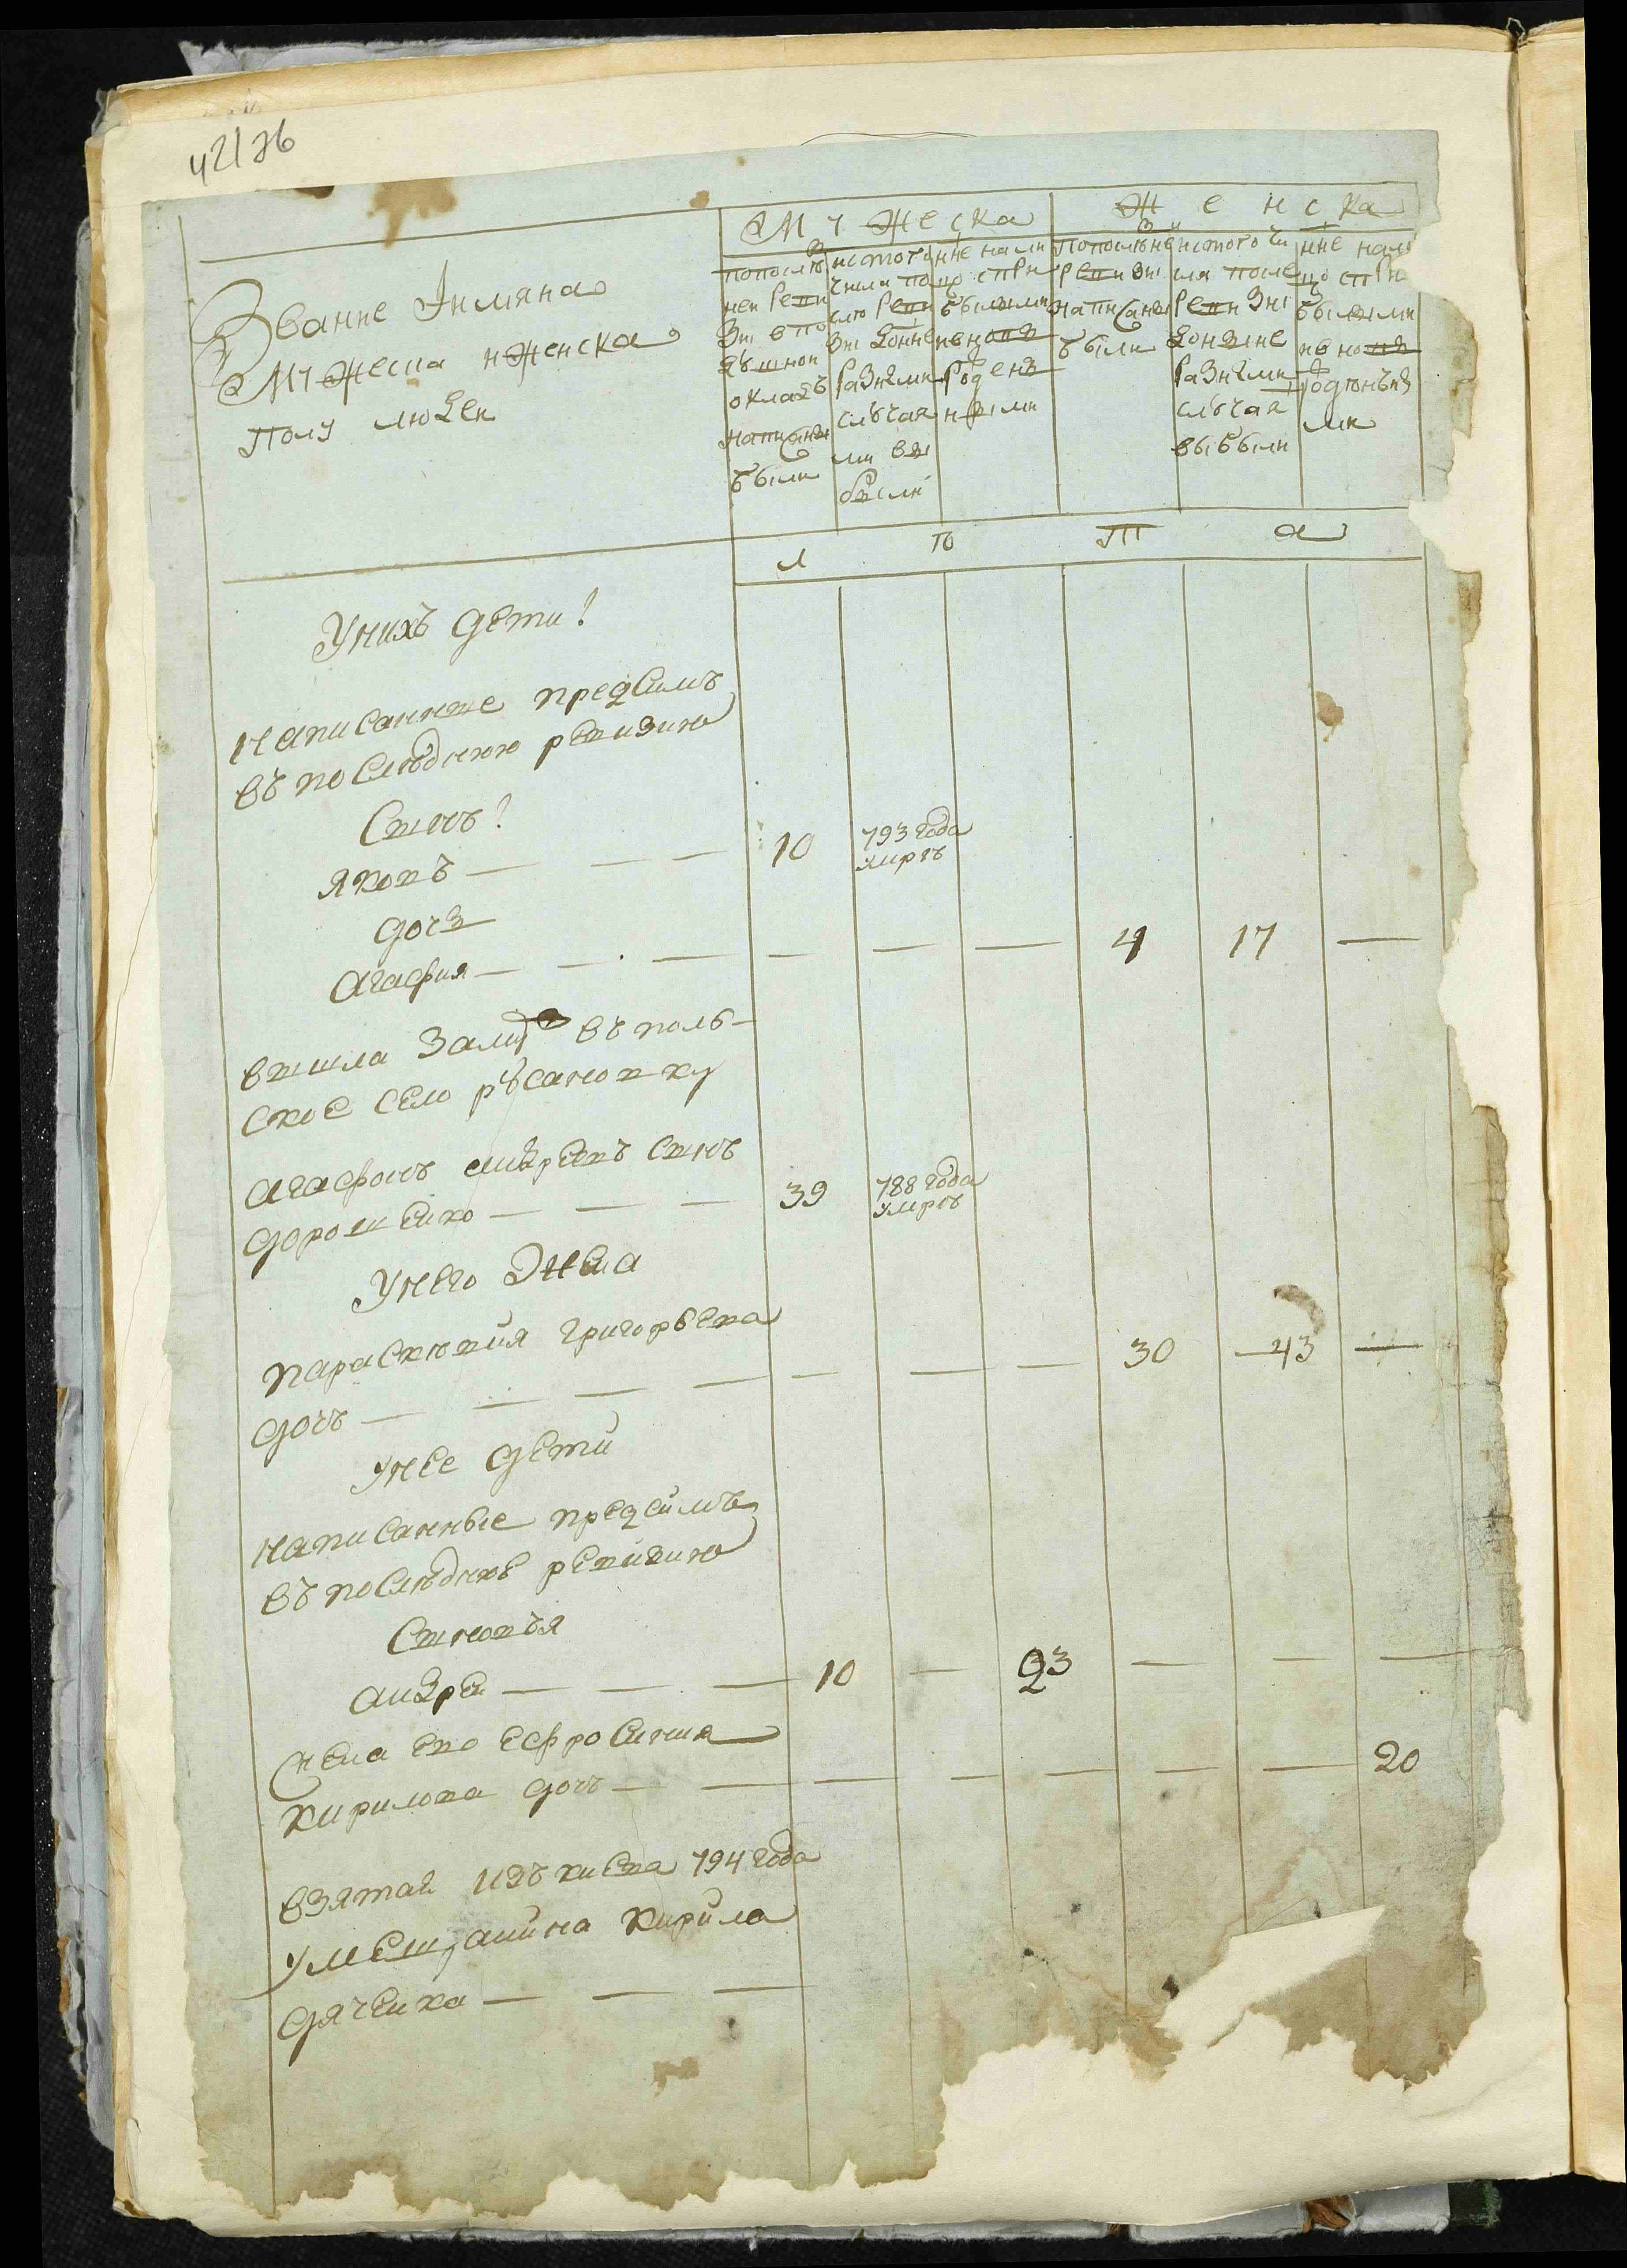 42/76
Звание Iимяна
Мужеска иЖенска
Полу людеи
Мужеска
Женска
попослѣд
неи реви
зиi в по
душнои
окладъ
написаны
были
истого
числа по
слѣ реви
зиi воины
разными
случая
ми вы
были
ине нали
цо стѣм
былыми
вновь
рожденны
ми
Попослѣдне
ревизиi
написаны
были
истого чи
сла после
ревизиi
воиные
разными
случая
выбыли
ине нали
цо стѣ
былыми
вново
рожоны
ми
л ѣ т а
Унихъ дети!
написанные предсимъ
въ последнюю ревизию
Сынъ!
яковъ — — — 10 793 года умръ
дочь
Агафия — — — — — — 4 17 —
вышла замуж въ поль-
ское село русановку
Агафонъ андреевъ сынъ
дорошенко — — — 39 788 года умръ
Унего жена
параскювия григорьева
дочъ — — — — — — — 30 — 43 —
Унее дети
написанные предсимъ
въ последнюе ревизию
Сыновъя
андреи — — — 10 — 23 — — —
жена ево ефросиния
кирилова дочъ — — — — — — — 20
взятая изъ киева 794 года
умещанина кирила
дяченка — — —